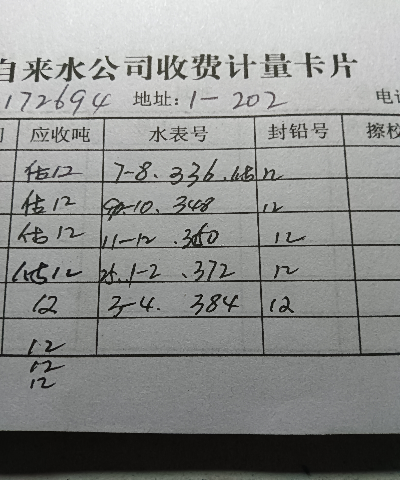 自来水公司收费计量卡片
172694 地址:1-202 电
应收吨 水表号 封铅号 擦校
估12 7-8. 336. 估12
估12 9-10. 348 12
估12 11-12 .360 12
估12 25.1-2 .372 12
12 3-4. 384 12
12
12
12